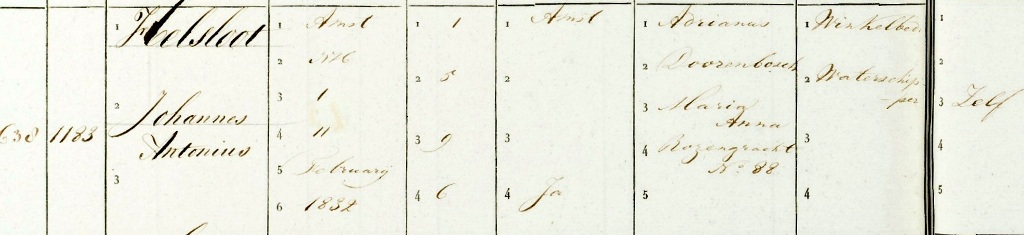 638
1183
1 Helsloot
2 Johannes
Antonius
3
1 Amst
2 NH
3 1
4 11
5 Februarij
6 1832
1 1
2 5
3 9
4 6
1 Amst
2
3
4 Ja
1 Adrianus
2 Doorenbosch
3 Maria
Anna
4 Rozengracht
No 88
5
1 Winkelbed
2 Waterschip
per
3
4
1
2
3 Zelf
4
5